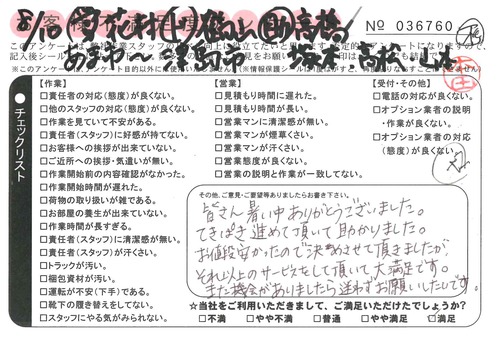 8/10
No 036760
チェックリスト
【作業】
□責任者の対応(態度)が良くない。
□他のスタッフの対応(態度)が良くない。
□作業を見ていて不安がある。
□責任者(スタッフ)に好感が持てない。
□お客様への挨拶が出来ていない。
□ご近所への挨拶・気遣いが無い。
□作業開始前の内容確認がなかった。
□作業開始時間が遅れた。
□荷物の取り扱いが雑である。
□お部屋の養生が出来ていない。
□作業時間が長すぎる。
□責任者(スタッフ)に清潔感が無い。
□責任者(スタッフ)が汗くさい。
□トラックが汚い。
□梱包資材が汚い。
□運転が不安(下手)である。
□靴下の履き替えをしてない。
□スタッフにやる気がみられない。
【営業】
□見積もり時間に遅れた。
□見積もり時間が長い。
□営業マンに清潔感が無い。
□営業マンが煙草くさい。
□営業マンが汗くさい。
□営業態度が良くない。
□営業の説明と作業が一致してない。
【受付・その他】
□電話の対応が良くない。
□オプション業者の説明
・作業が良くない。
□オプション業者の対応
(態度)が良くない。
その他、ご意見・ご要望等ありましたらお書き下さい。
皆さん暑い中ありがとうございました。
てきぱき進めて頂いて助かりました。
お値段安かったので決めさせて頂きましたが、
それ以上のサービスをして頂いて大満足です。
また機会がありましたら迷わずお願いしたいです。
☆当社をご利用いただきまして、ご満足いただけたでしょうか?
□不満 □やや不満 □普通 □やや満足 □満足